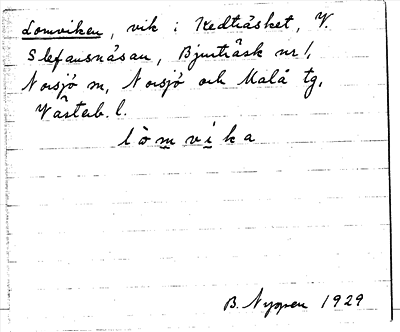 Lomviken, vik i Kedträsket, V.
Stefansnäsan, Bjurträsk nr 1,
Norsjö m, Norsjö och Malå tg,
Västerb. l.
lòmvika
B. Nyppen 1929